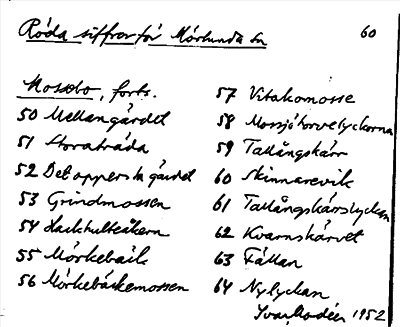 Röda siffror för Mörlunda sn
60
Mosebo, forts.
50 Mellangärdet
51 Storaträda
52 Det oppersta gärdet
53 Grindmossen
54 Hackhulteåkern
55 Mörkebäck
56 Mörkebäckemossen
57 Vitakomosse
58 Mossjötorvelyckorna
59 Tallångskärr
60 Skinnarevik
61 Tallångskärrslyckan
62 Kvarnskärvet
63 Fällan
64 Nylyckan
Ivar Modéer 1952